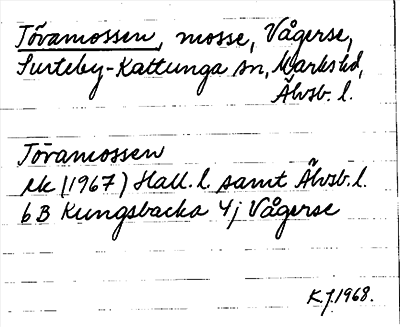 Töramossen, mosse, Vågerse,
Surteby-Kattunga sn, Marks hd,
Älvsb. l.
Töramossen
ek (1967) Hall. l. samt Älvsb. l.
6 B Kungsbacka 4j Vågerse
K.J. 1968.